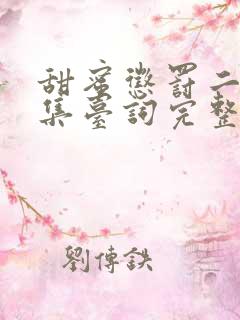 甜蜜懲罰二
集臺詞完整
劉傳鉄